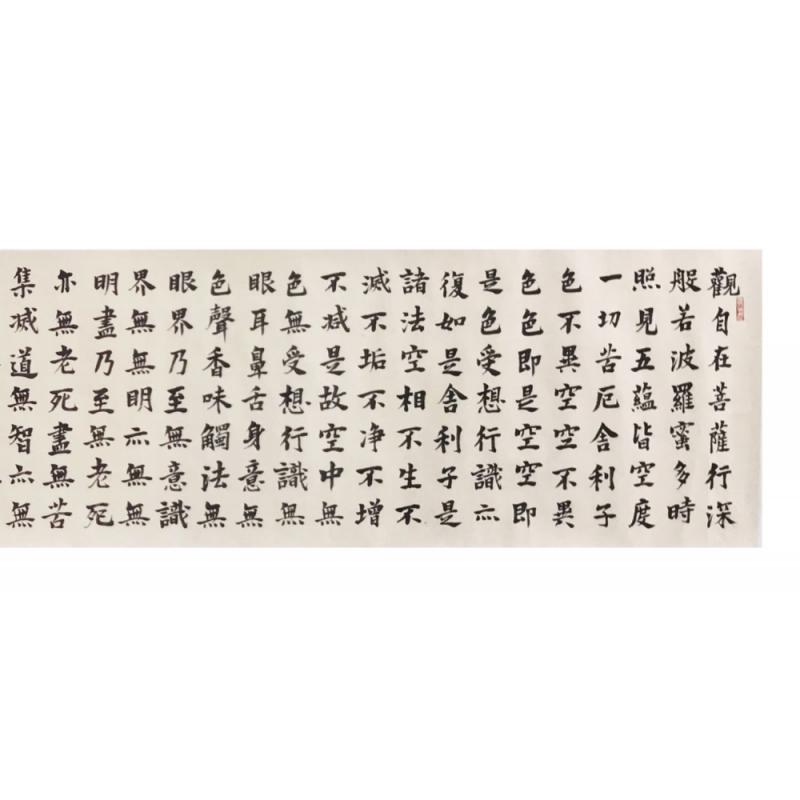 觀自在菩薩行深
般若波羅蜜多時
照見五蘊皆空度
一切苦厄舍利子
色不異空空不異
色色即是空空即
是色受想行識亦
復如是舍利子是
諸法空相不生不
滅不垢不净不增
不减是故空中無
色無受想行識無
眼耳鼻舌身意無
色聲香味觸法無
眼界乃至無意識
界無無明亦無無
明盡乃至無老死
亦無老死盡無苦
集滅道無智亦無